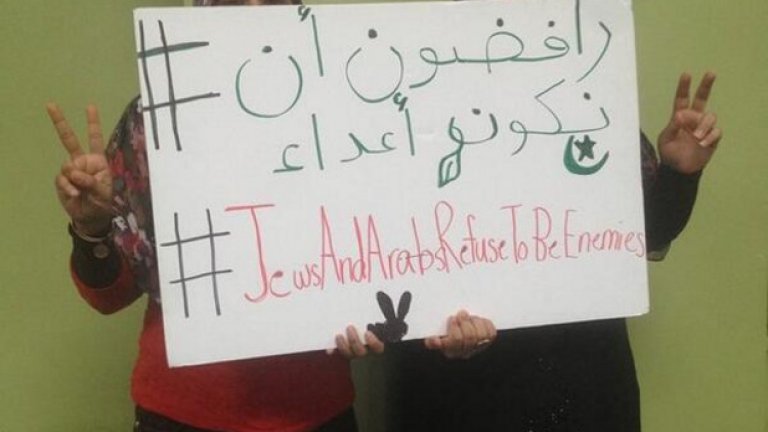 #رافضون أن
نكونو أعداء
#JewsAndArabsRefuseToBeEnemies